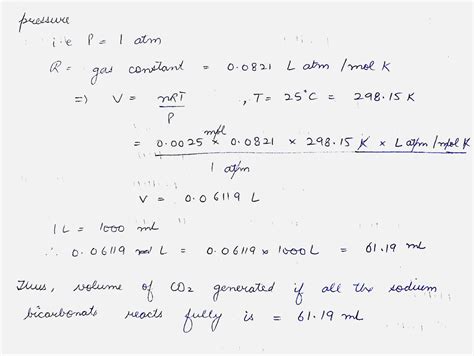 pressure
i.e P = 1 atm
R = gas constant = 0.0821 L atm / mol K
=> V = nRT / P , T = 25°C = 298.15 K
= 0.0025 mol x 0.0821 x 298.15 K x L atm / mol K
1 atm
V = 0.06119 L
1 L = 1000 mL
∴ 0.06119 L = 0.06119 x 1000 L = 61.19 mL
Thus, volume of CO2 generated if all the sodium
bicarbonate reacts fully is = 61.19 mL